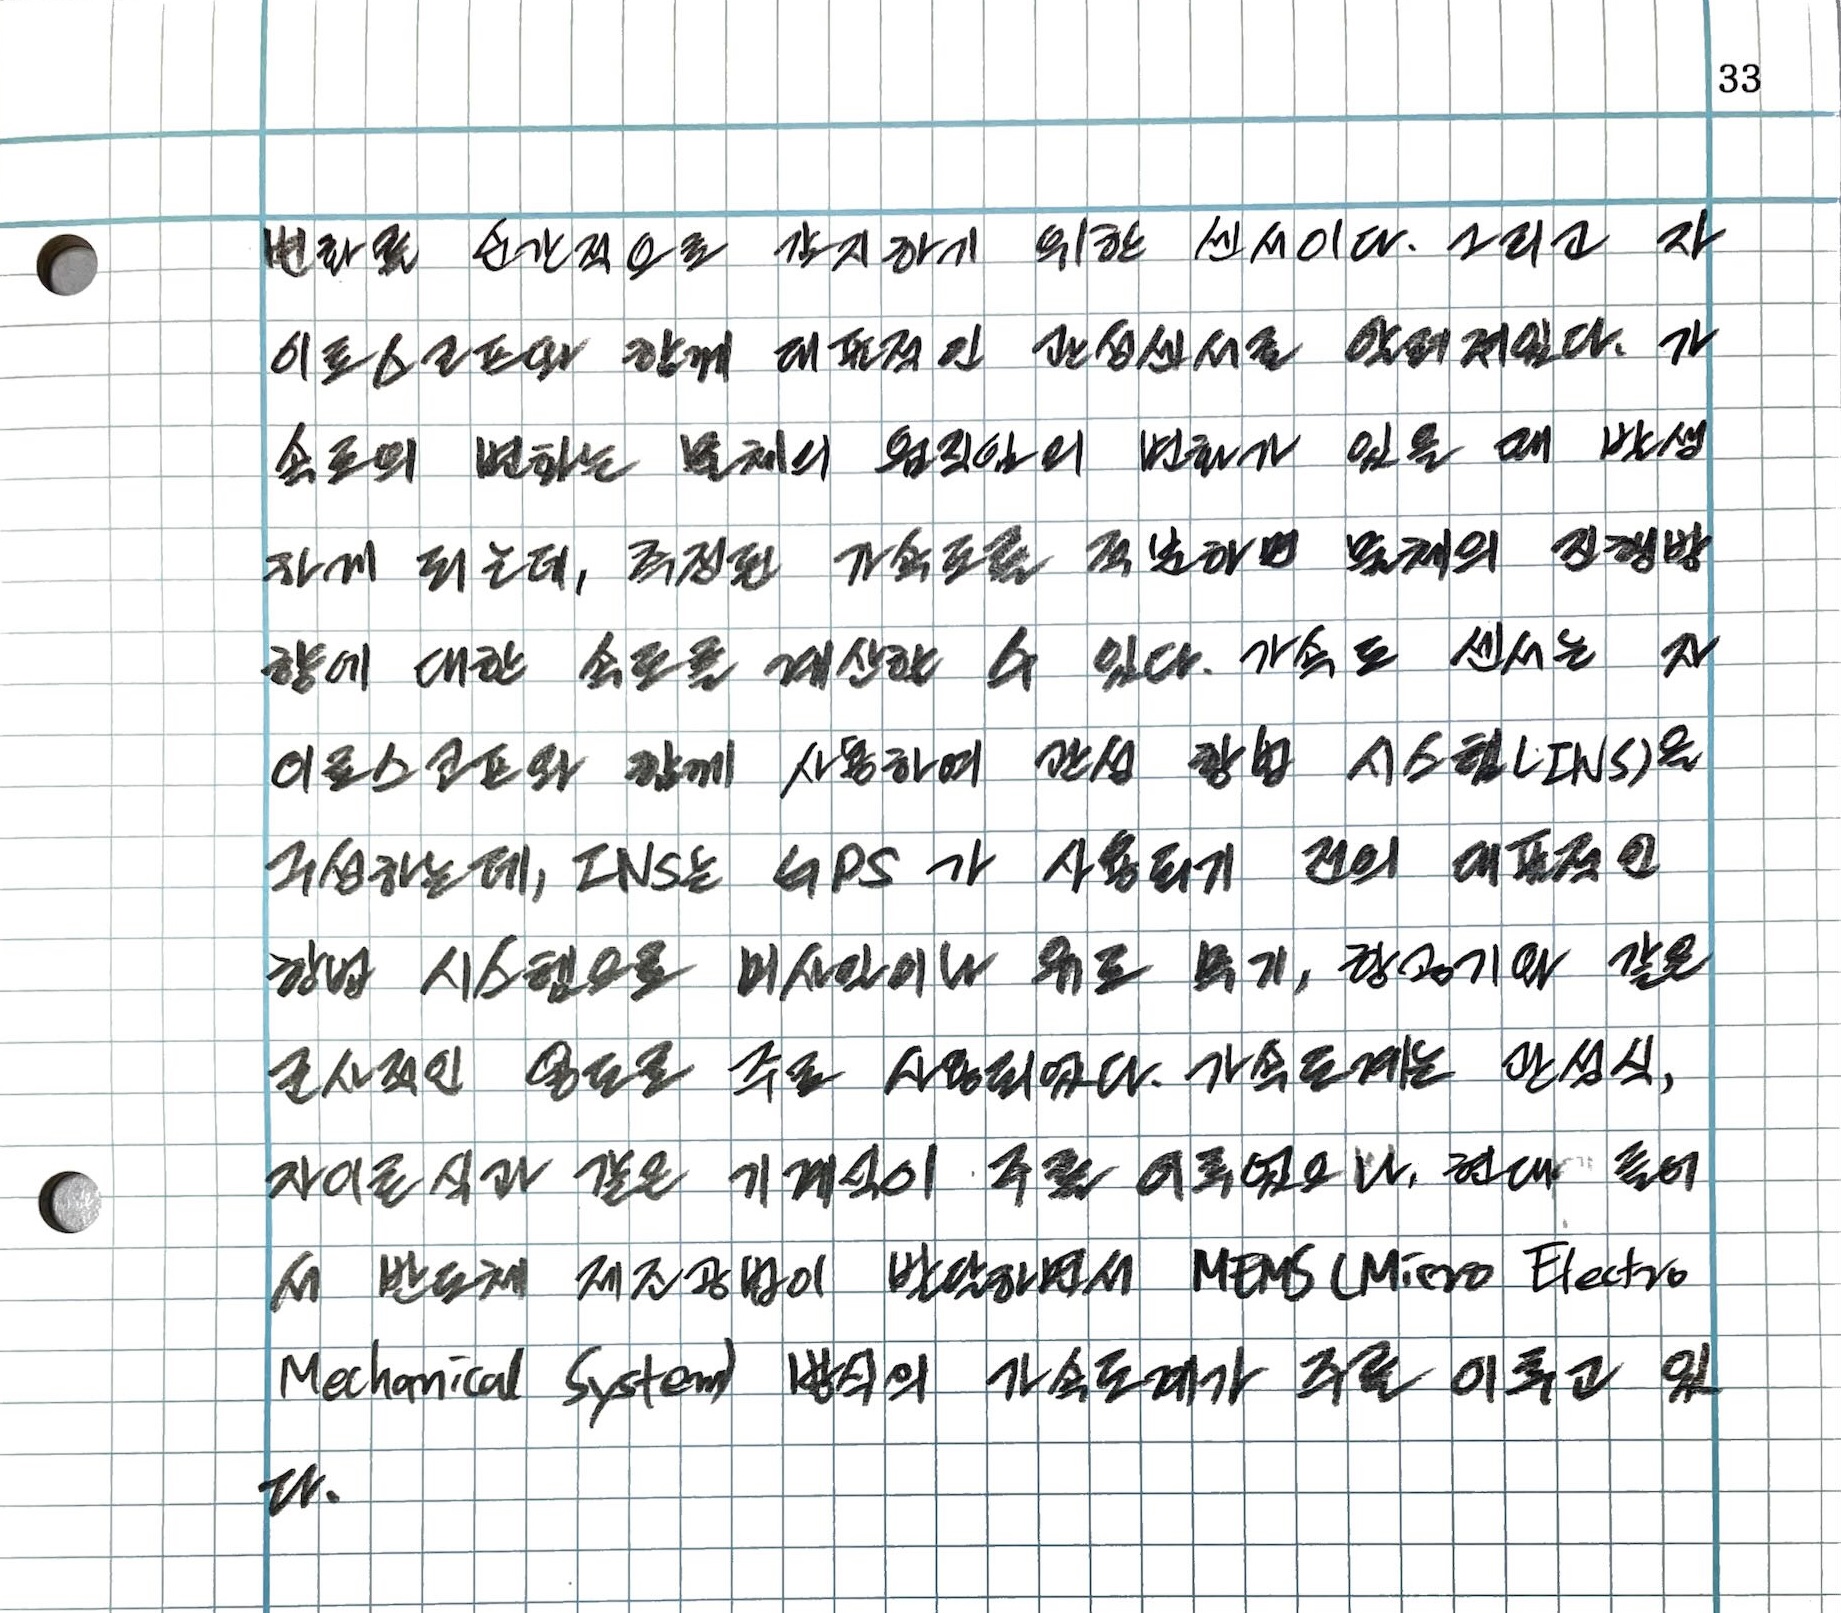 33
변화를 순간적으로 감지하기 위한 센서이다. 그리고 자
이로스코프와 함께 대표적인 관성센서로 알려져있다. 가
속도의 변화는 물체의 움직임의 변화가 있을 때 발생
하게 되는데, 측정된 가속도를 적분하면 물체의 진행방
향에 대한 속도를 계산할 수 있다. 가속도 센서는 자
이로스코프와 함께 사용하여 관성 항법 시스템(INS)을
구성하는데, INS는 GPS가 사용되기 전의 대표적인
항법 시스템으로 미사일이나 유도 무기, 항공기와 같은
군사적인 용도로 주로 사용되었다. 가속도계는 관성식,
자이로식과 같은 기계식이 주를 이루었으나, 현대 들어
서 반도체 제조공법이 발달하면서 MEMS (Micro Electro
Mechanical System) 방식의 가속도계가 주를 이루고 있
다.